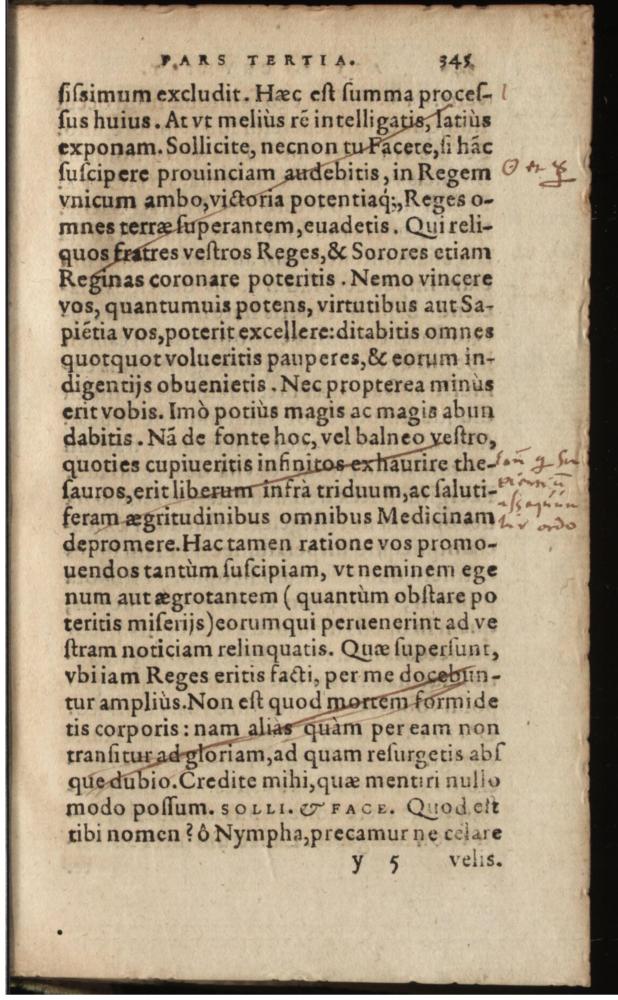 PARS TERTIA. 345
ſiſsimum excludit. Hæc eſt ſumma proceſ-
ſus huius. At vt meliùs rē intelligatis, ſatiùs
exponam. Sollicite, necnon tu Facete, ſi hāc
ſuſcipere prouinciam audebitis, in Regem
vnicum ambo, victoria potentiaq́;, Reges o-
mnes terræ ſuperantem, euadetis. Qui reli-
quos fratres veſtros Reges, & Sorores etiam
Reginas coronare poteritis. Nemo vincere
vos, quantumuis potens, virtutibus aut Sa-
piētia vos, poterit excellere: ditabitis omnes
quotquot volueritis pauperes, & eorum in-
digentijs obuenietis. Nec propterea minùs
erit vobis. Imò potiùs magis ac magis abun
dabitis. Nā de fonte hoc, vel balneo veſtro,
quoties cupiueritis infinitos exhaurire the-
ſauros, erit liberum infrà triduum, ac ſaluti-
feram ægritudinibus omnibus Medicinam
depromere. Hac tamen ratione vos promo-
uendos tantùm ſuſcipiam, vt neminem ege
num aut ægrotantem (quantùm obſtare po
teritis miſerijs) eorum qui peruenerint ad ve
ſtram noticiam relinquatis. Quæ ſuperſunt,
vbi iam Reges eritis facti, per me docebun-
tur ampliùs. Non eſt quod mortem formide
tis corporis: nam aliàs quàm per eam non
tranſitur ad gloriam, ad quam reſurgetis abſ
que dubio. Credite mihi, quæ mentiri nullo
modo poſſum. SOLLI. & FACE. Quod eſt
tibi nomen? ô Nympha, precamur ne celare
y 5 velis.